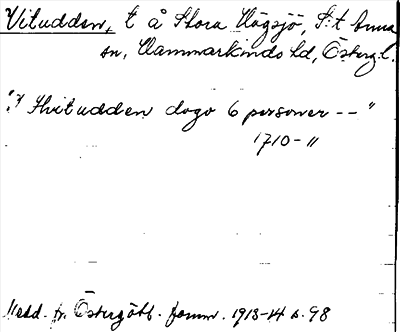 Vitudden, t å Stora Hägsjö, S:t Anna
sn, Hammarkinds hd, Östergl.
"I Hvitudden dogo 6 personer -- "
1710-11
Medd. fr. Östergötl. fornm. 1913-14 s. 98